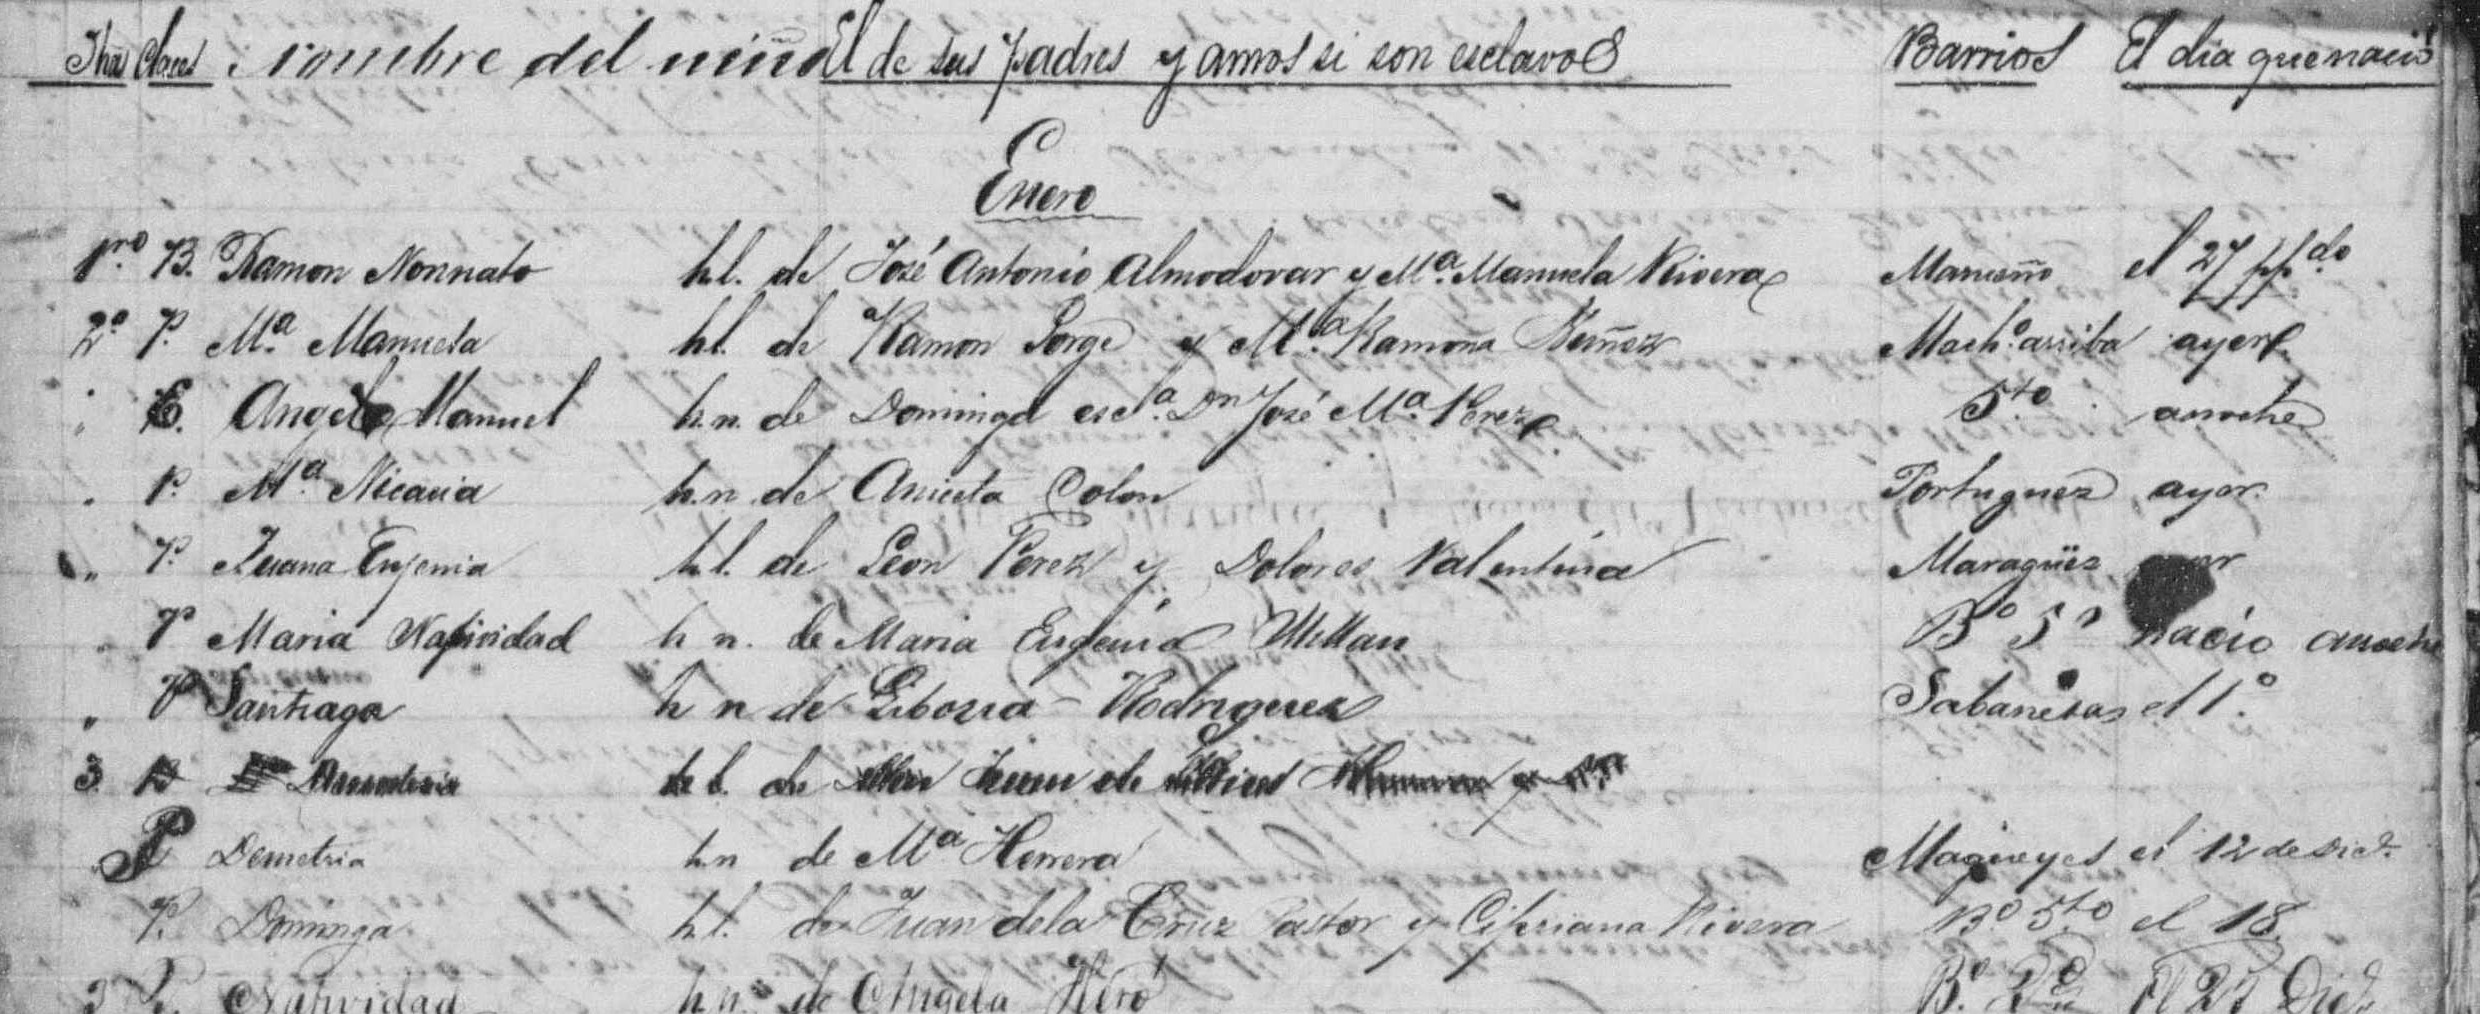 Fhas Clases Nombre del niño El de sus padres y amos si son esclavos Barrios El dia que nació
Enero
1ro B. Ramon Nonnato h.l. de José Antonio Almodovar y Ma. Manuela Rivera el 27 pp.do
2o P. Ma. Manuela h.l. de Ramon Jorge y Ma. Ramona Mach.o arriba ayer
" E. Angel Manuel h.n. de Dominga escl.a Dn José Ma. Perez 5to. anoche
" P. Ma. Nicacia h.n. de Aniceta Colon Portuguez ayer.
" P. Juana Eujenia h.l. de Leon Perez y Dolores Valentina Maragüez
" P Maria Natividad h n. de Maria Eugenia Millan Bo 5o nacio anoche
" P Santiaga h n de Liboria Rodriguez Sabanetas el 1o.
3 h l. de Juan de
P Demetria h n de Ma Herrera Magueyes el 12 de Dice.
P. Dominga h.l. de Juan dela Cruz Pastor y Cipriana Rivera Bo 5to el 18.
3 P. Natividad h n. de Angela Bo. El 25 Dice.